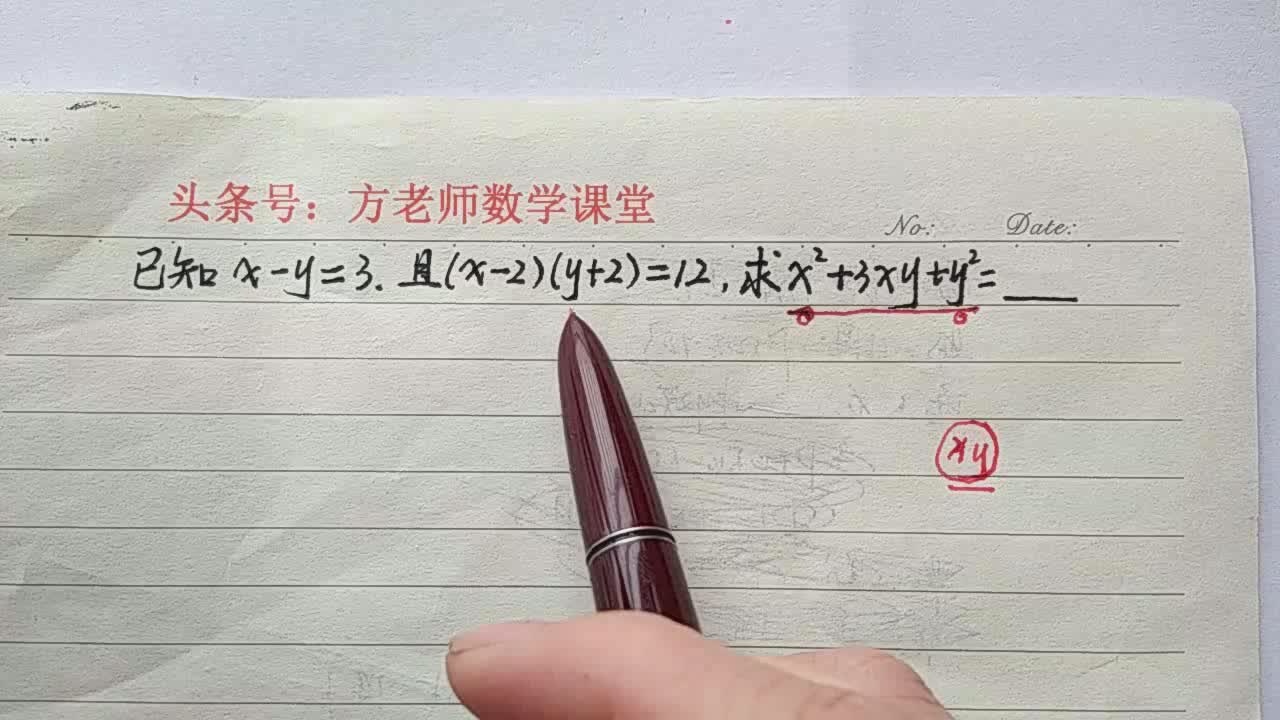 头条号：方老师数学课堂
No: Date:
已知 x-y=3. 且(x-2)(y+2)=12, 求x²+3xy+y²=___
xy